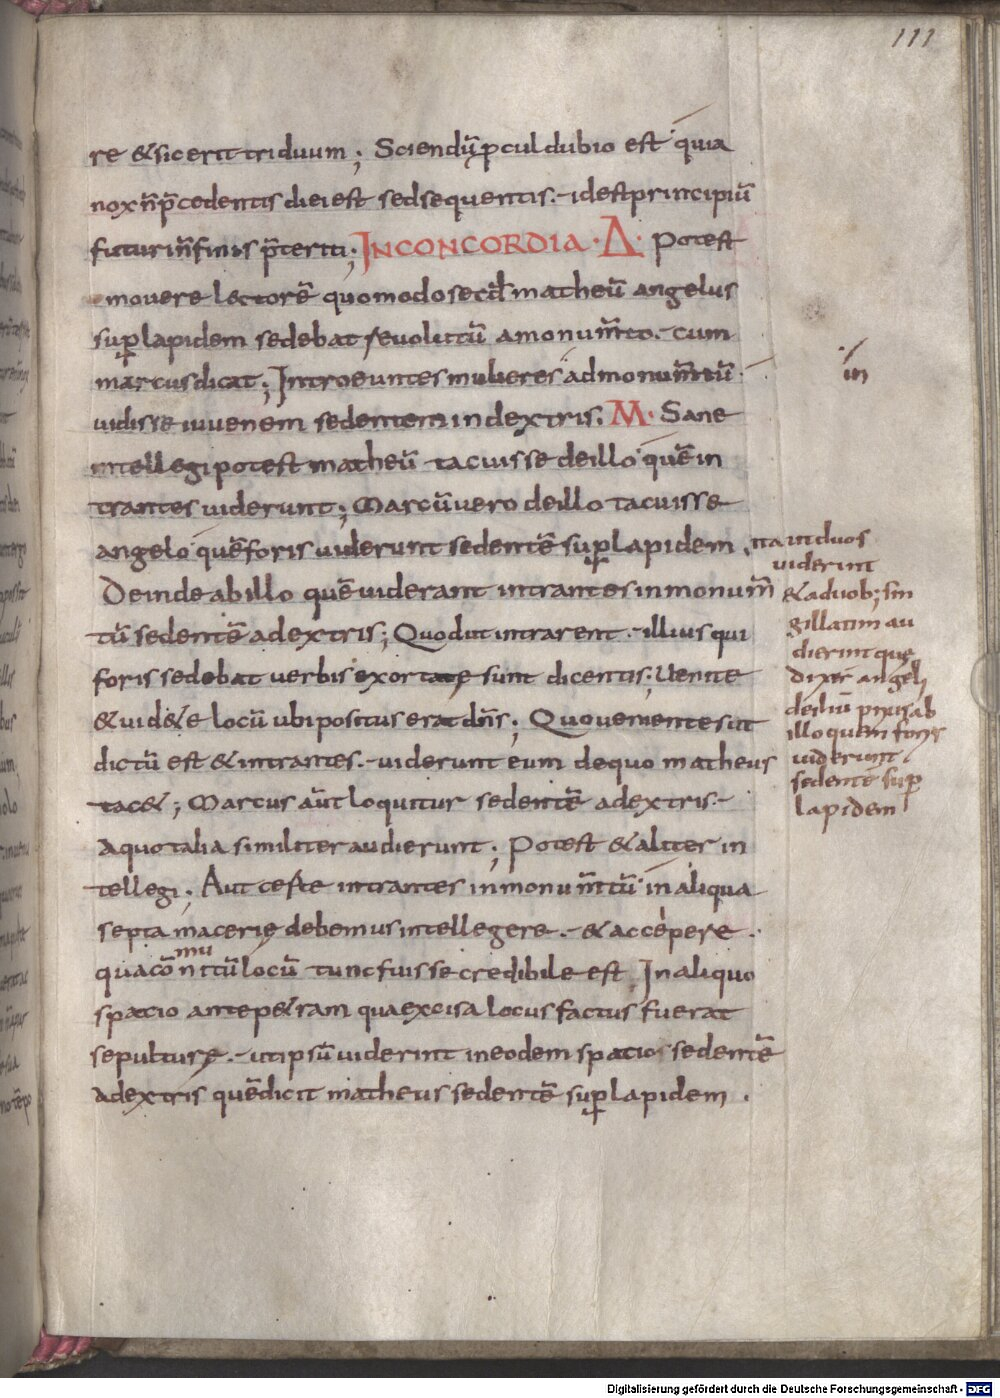 111
re &sic erit triduum; Sciendū ꝑcul dubio est quia
nox n̄ p̄cedentis diei est sed sequentis. idest principiū
futuri n̄ finis p̄teriti; IN CONCORDIA · Δ · Potest
movere lectorē quomodo secd̄ matheū angelus
sup̲ lapidem sedebat revolutū a monum̄to. cum
marcus dicat; Introeuntes mulieres ad monum̄tū
vidisse iuvenem sedentem in dextris. M · Sane
intellegi potest matheū tacuisse de illo quē in
trantes viderunt; Marcū vero de illo tacuisse
angelo quē foris viderunt sedentē sup̲ lapidem.
Deinde ab illo quē viderant intrantes in monum̄
tū sedentē a dextris; Quod ut intrarent. illius qui
foris sedebat verbis exortate sunt dicentis; Venite
& vid&e locū ubi positus erat dn̄s; Quo venientes ut
dictū est & intrantes. viderunt eum de quo matheus
tac&; Marcus aūt loquitur sedentē a dextris.
A quo talia similiter audierunt; Potest & aliter in
tellegi; Aut certe intrantes in monum̄tū in aliqua
septa macerię debemus intellegere. & accepere.
mu
qua cōnitū locū tunc fuisse credibile est. In aliquo
spatio ante p&ram qua excisa locus factus fuerat
sepulturę. ut ipsū viderint in eodem spatio sedentē
a dextris quē dicit matheus sedentē sup̲ lapidem.
in
ita ut duos
viderint
& a duob; sin
gillatim au
dierint quę
dixer̄ angeli
de iħū prius ab
illo quem foris
viderunt
sedentē sup̲
lapidem
Digitalisierung gefördert durch die Deutsche Forschungsgemeinschaft - DFG